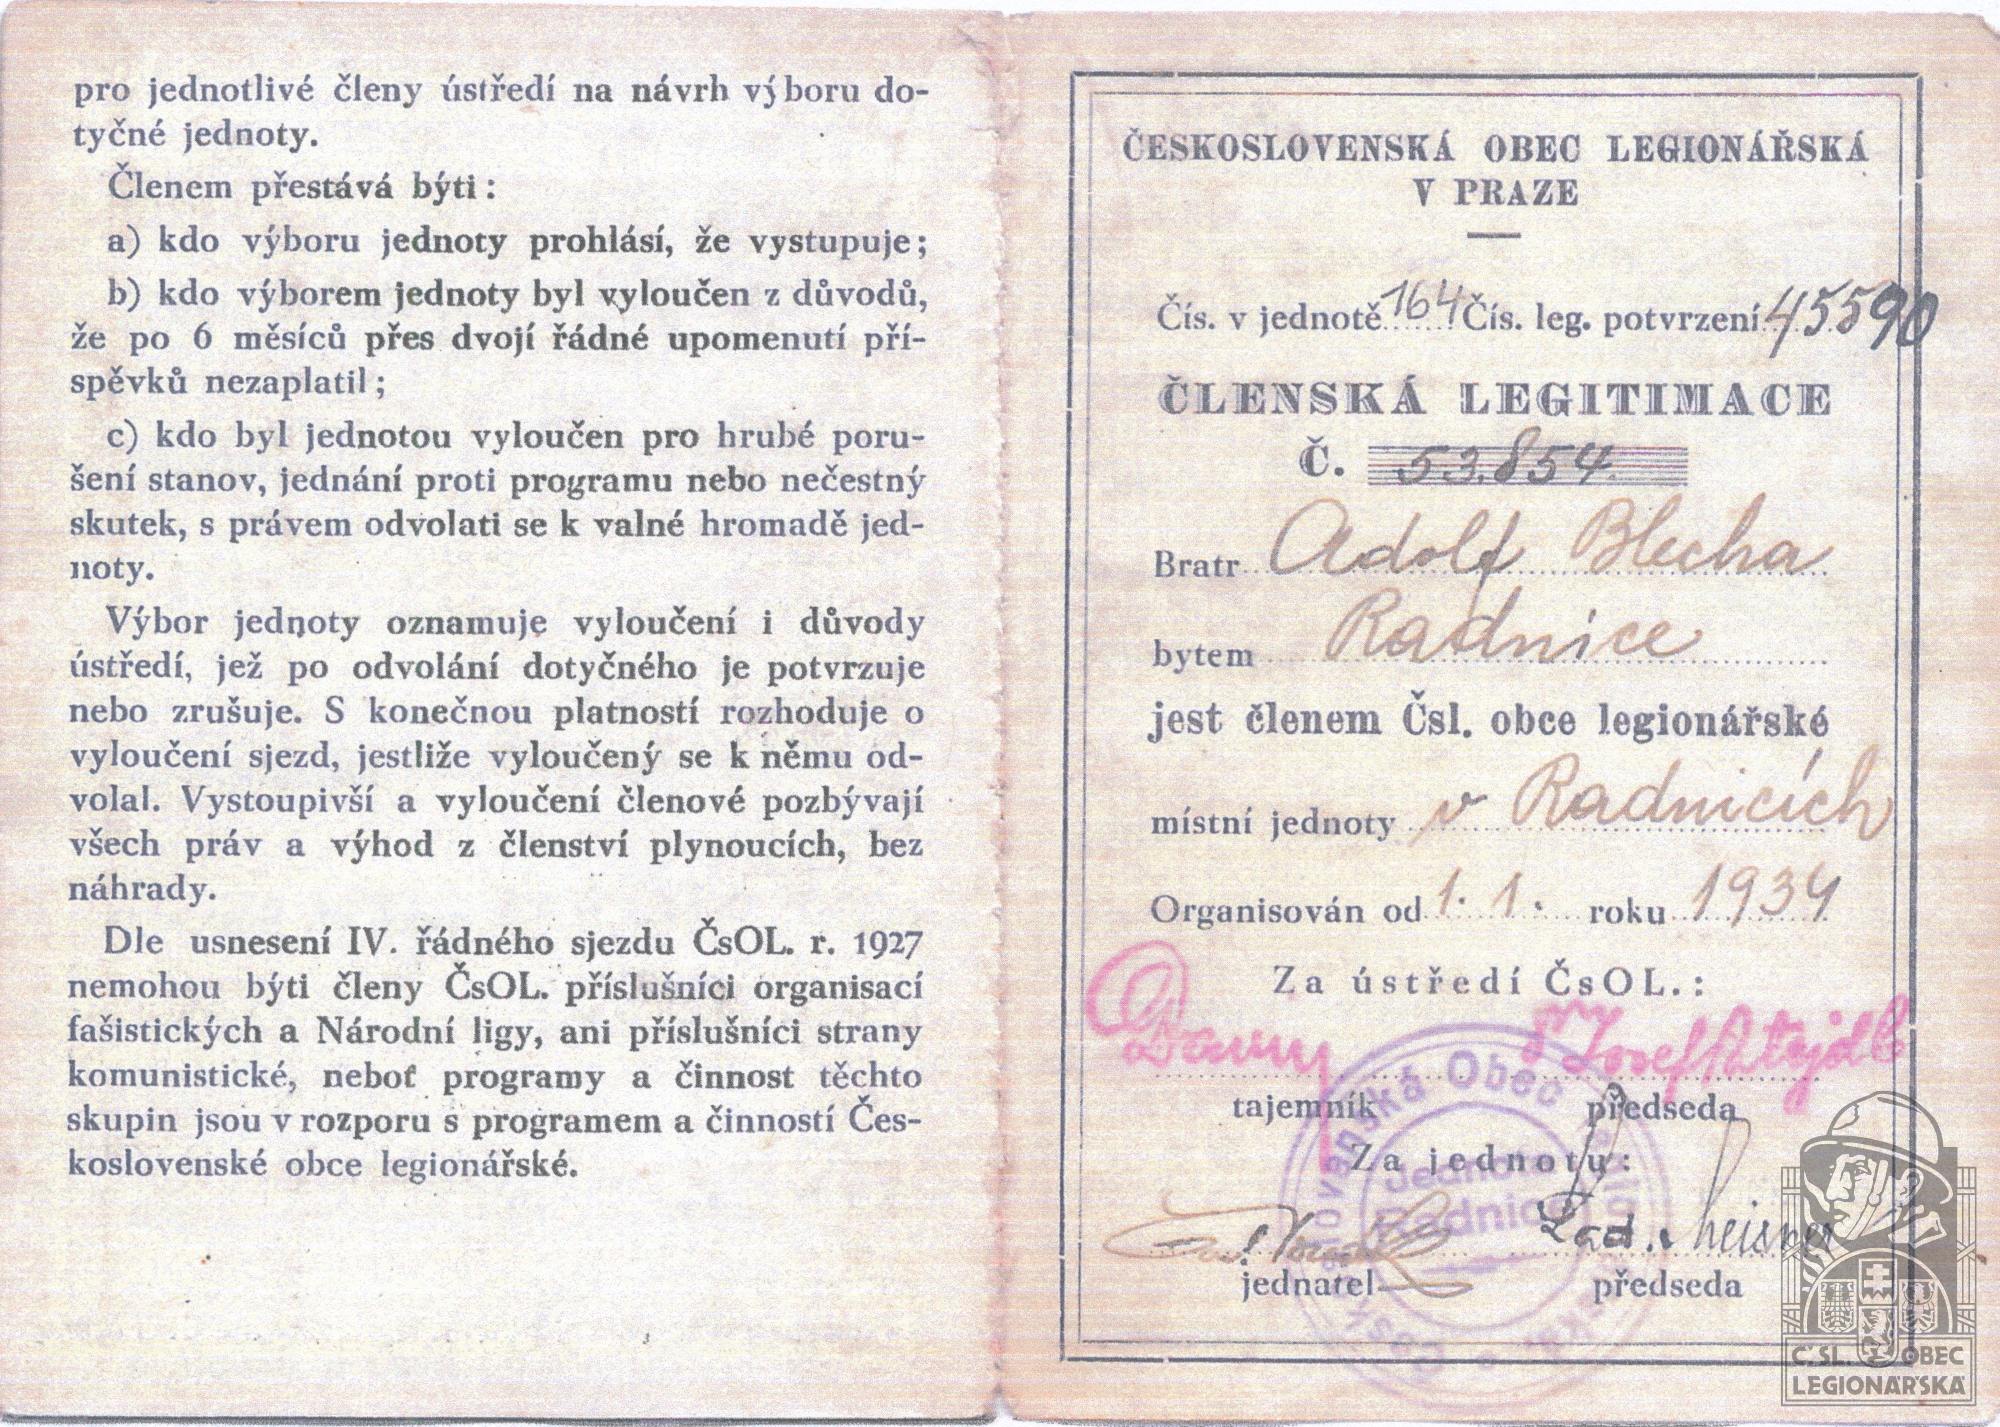 pro jednotlivé členy ústředí na návrh výboru do-
tyčné jednoty.
Členem přestává býti:
a) kdo výboru jednoty prohlásí, že vystupuje;
b) kdo výborem jednoty byl vyloučen z důvodů,
že po 6 měsíců přes dvojí řádné upomenutí pří-
spěvků nezaplatil;
c) kdo byl jednotou vyloučen pro hrubé poru-
šení stanov, jednání proti programu nebo nečestný
skutek, s právem odvolati se k valné hromadě jed-
noty.
Výbor jednoty oznamuje vyloučení i důvody
ústředí, jež po odvolání dotyčného je potvrzuje
nebo zrušuje. S konečnou platností rozhoduje o
vyloučení sjezd, jestliže vyloučený se k němu od-
volal. Vystoupivší a vyloučení členové pozbývají
všech práv a výhod z členství plynoucích, bez
náhrady.
Dle usnesení IV. řádného sjezdu ČsOL. r. 1927
nemohou býti členy ČsOL. příslušníci organisací
fašistických a Národní ligy, ani příslušníci strany
komunistické, neboť programy a činnost těchto
skupin jsou v rozporu s programem a činností Čes-
koslovenské obce legionářské.
ČESKOSLOVENSKÁ OBEC LEGIONÁŘSKÁ
V PRAZE
Čís. v jednotě 164 Čís. leg. potvrzení 45590
ČLENSKÁ LEGITIMACE
Č. 53.854.
Bratr Adolf Blecha
bytem Radnice
jest členem Čsl. obce legionářské
místní jednoty v Radnicích
Organisován od 1. 1. roku 1934
Za ústředí ČsOL.:
Josef
tajemník předseda
Za jednotu:
Lad. Meisner
jednatel předseda
Obec
Jednota
Radnice
Č. SL. OBEC
LEGIONÁŘSKÁ